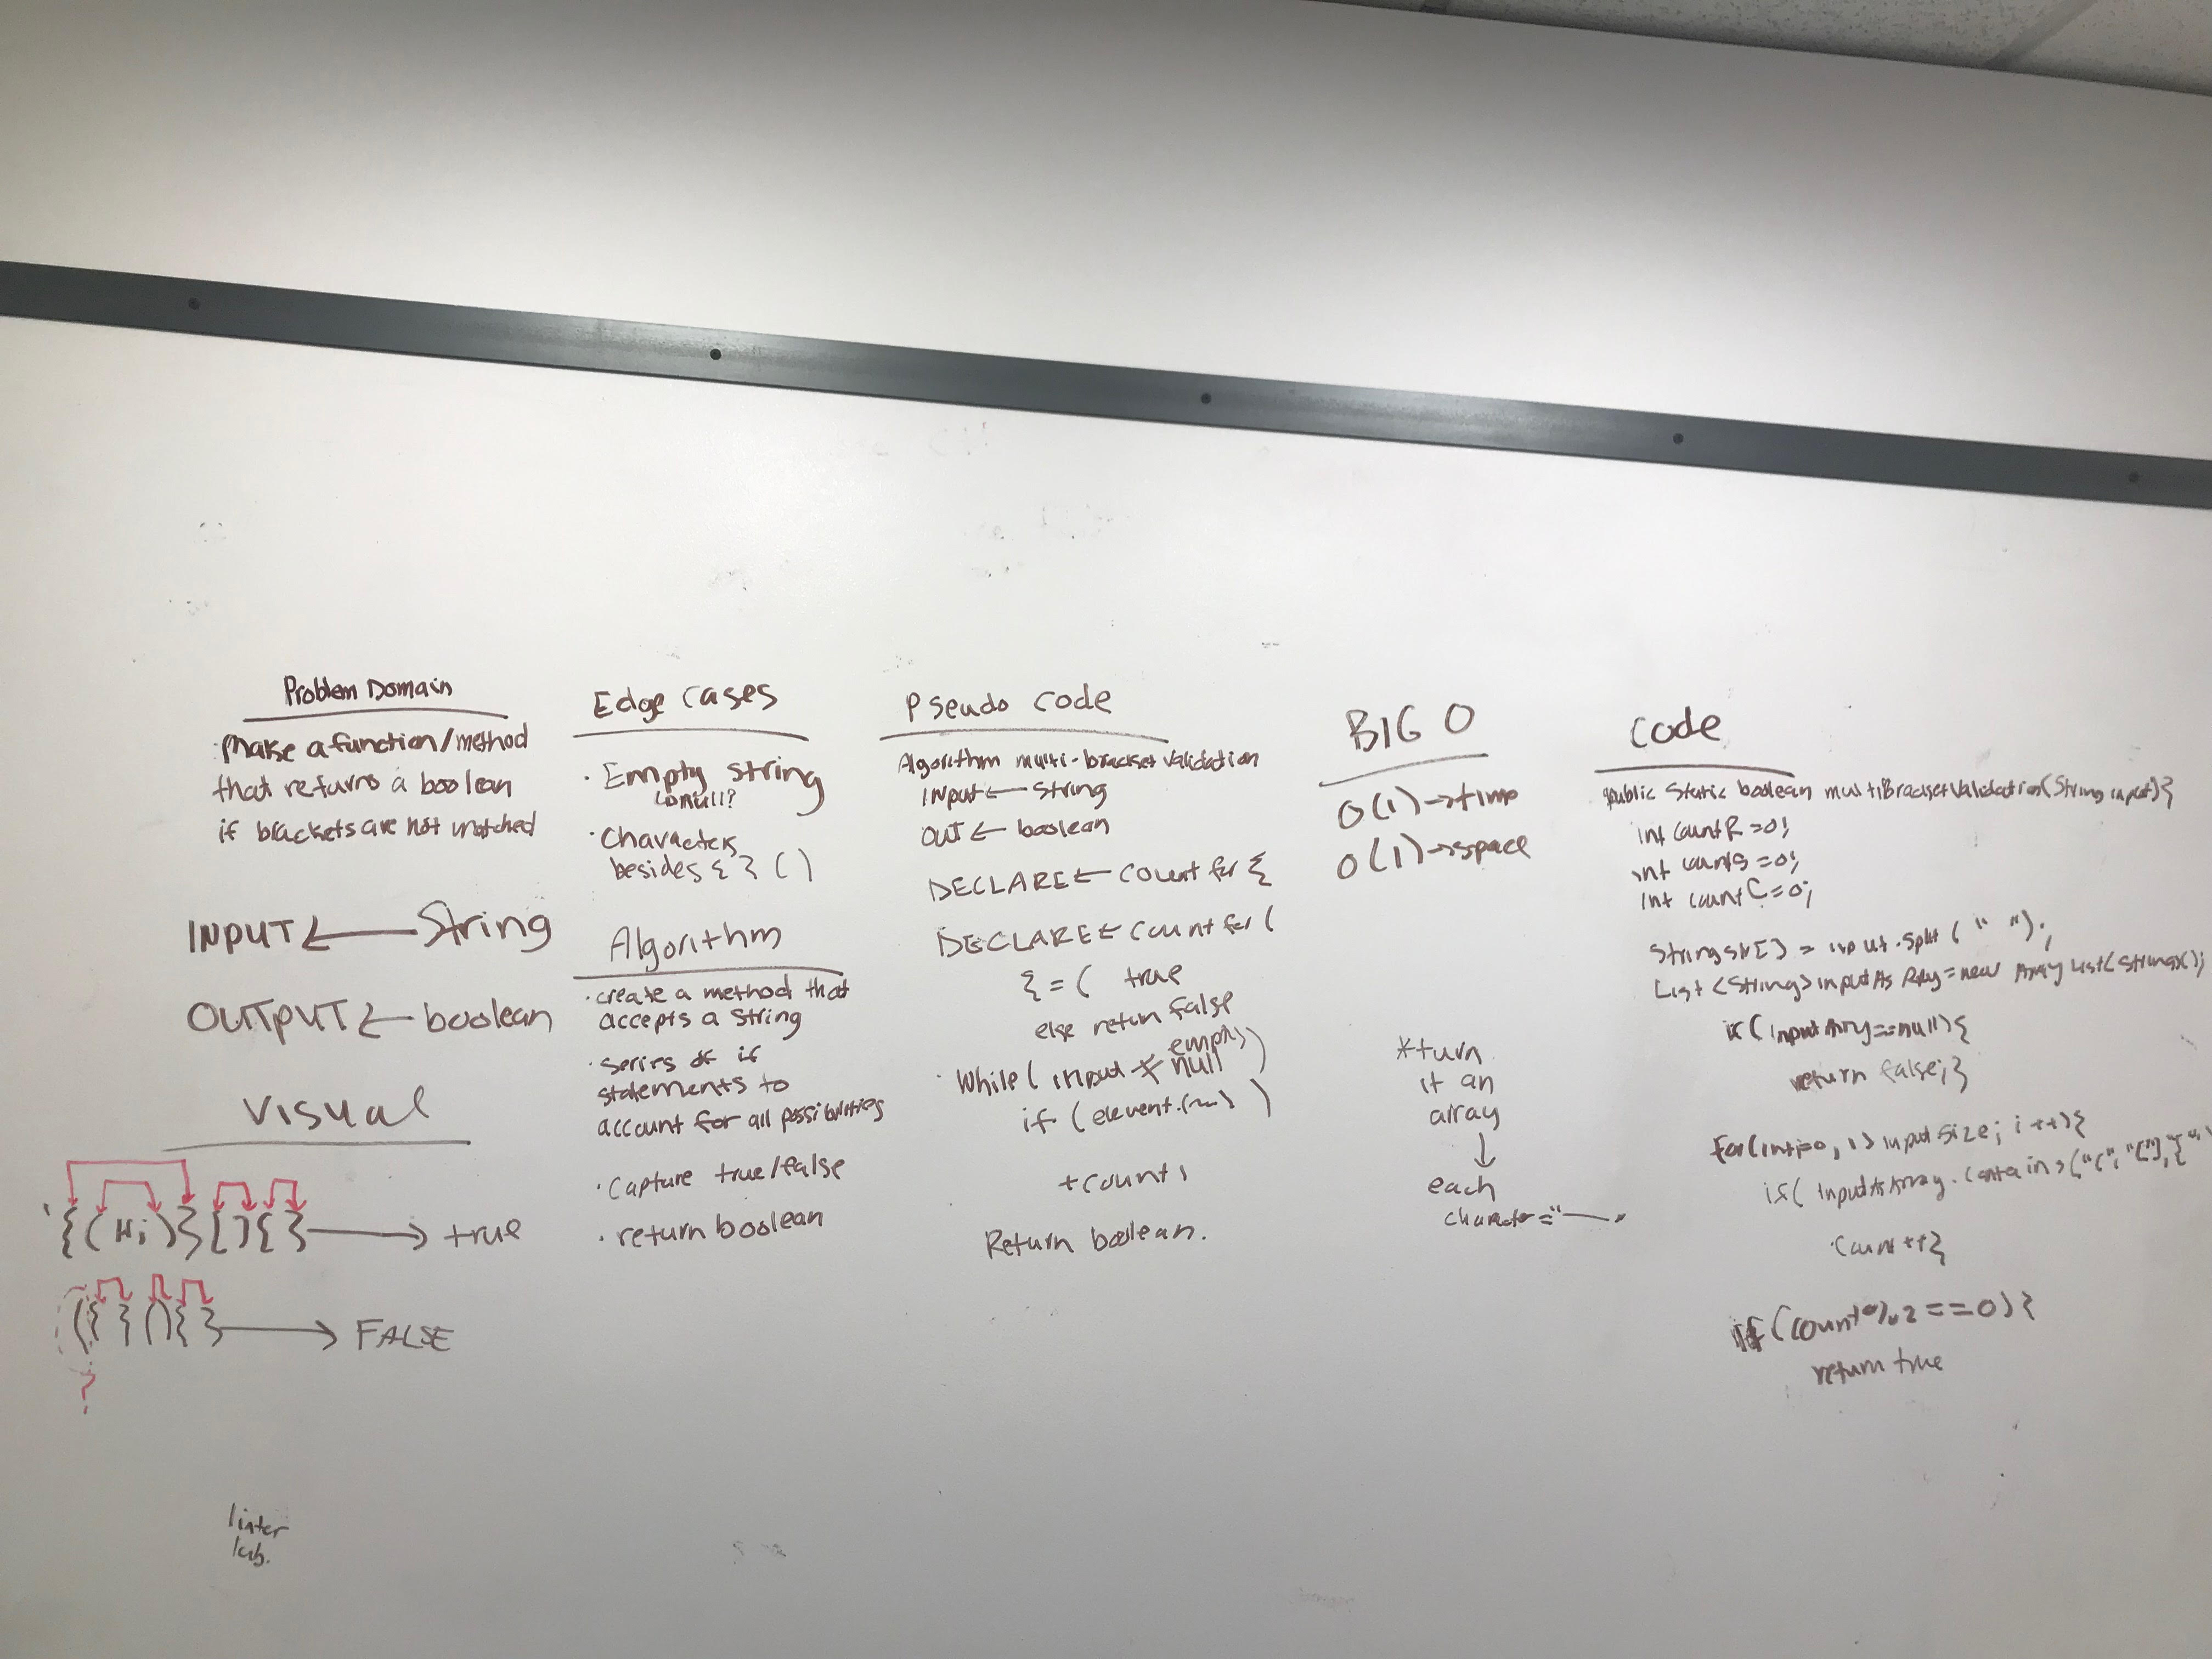 Problem Domain
Make a function/method
that returns a boolean
if brackets are not matched
INPUT ← String
OUTPUT ← boolean
Visual
{(Hi)}[]{} → true
({}(){} → FALSE
?
linter
lab.
Edge Cases
· Empty string
↳ null?
· Characters
besides { } ( )
Algorithm
· create a method that
accepts a string
· series of if
statements to
account for all possibilities
· Capture true/false
· return boolean
Pseudo Code
Algorithm multi-bracket validation
INPUT ← String
OUT ← boolean
DECLARE ← count for {
DECLARE ← count for (
{ = ( true
else return false
empty)
· While( input ≠ null )
if (element.(~~) )
+count;
Return boolean.
BIG O
O(1) → time
O(1) → space
*turn
it an
array
↓
each
character = "
Code
public static boolean multiBracketValidation(String input){
int countR = 0;
int countS = 0;
int countC = 0;
String str[] = input.split(" ");
List <String> inputAs = new Array List(strings);
if( inputArray == null){
return false;}
for(int i=0, i> input size; i++){
if( InputAsArray.contains("(", "["], {"
Count++}
if (count % 2 == 0){
return true